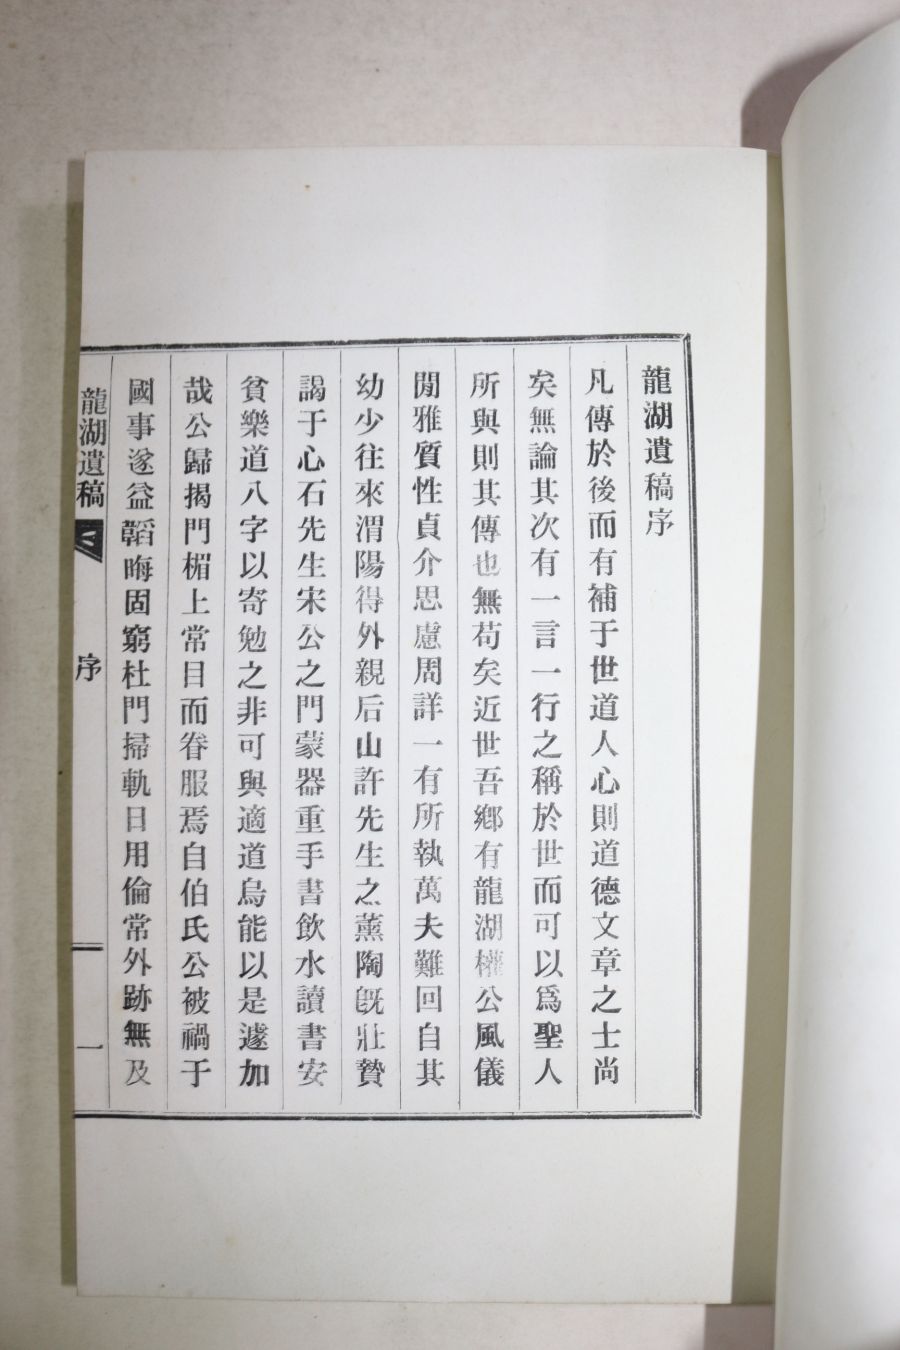 龍湖遺稿序
凡傳於後而有補于世道人心則道德文章之士尚
矣無論其次有一言一行之稱於世而可以爲聖人
所與則其傳也無苟矣近世吾鄉有龍湖權公風儀
閒雅質性貞介思慮周詳一有所執萬夫難回自其
幼少往來渭陽得外親后山許先生之薰陶旣壯贄
謁于心石先生宋公之門蒙器重手書飮水讀書安
貧樂道八字以寄勉之非可與適道烏能以是遽加
哉公歸揭門楣上常目而眷服焉自伯氏公被禍于
國事遂益韜晦固窮杜門掃軌日用倫常外跡無及
龍湖遺稿
序
一